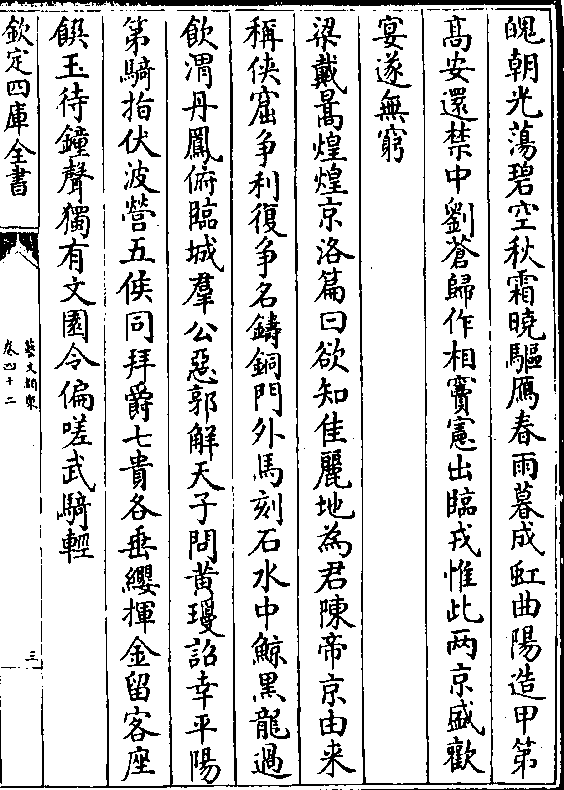 魄朝光蕩碧空秋霜曉驅鴈春雨暮成虹曲陽造甲第
髙安還禁中劉蒼歸作相竇憲出臨戎惟此两京盛歡
宴遂無窮
梁戴暠煌煌京洛篇曰欲知佳麗地為君陳帝京由来
稱俠窟争利復争名鑄銅門外馬刻石水中鯨黒龍過
飲渭丹鳳俯臨城羣公惡郭解天子問黄瓊詔幸平陽
第騎指伏波營五侯同拜爵七貴各垂纓揮金留客座
饌玉待鐘聲獨有文園令偏嗟武騎輕
欽定四庫全書
藝文類聚
卷四十二
三